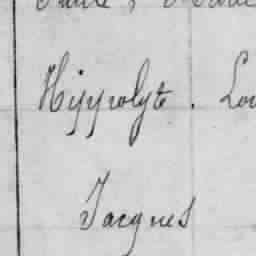 Hippolyte. Lou
Jacques